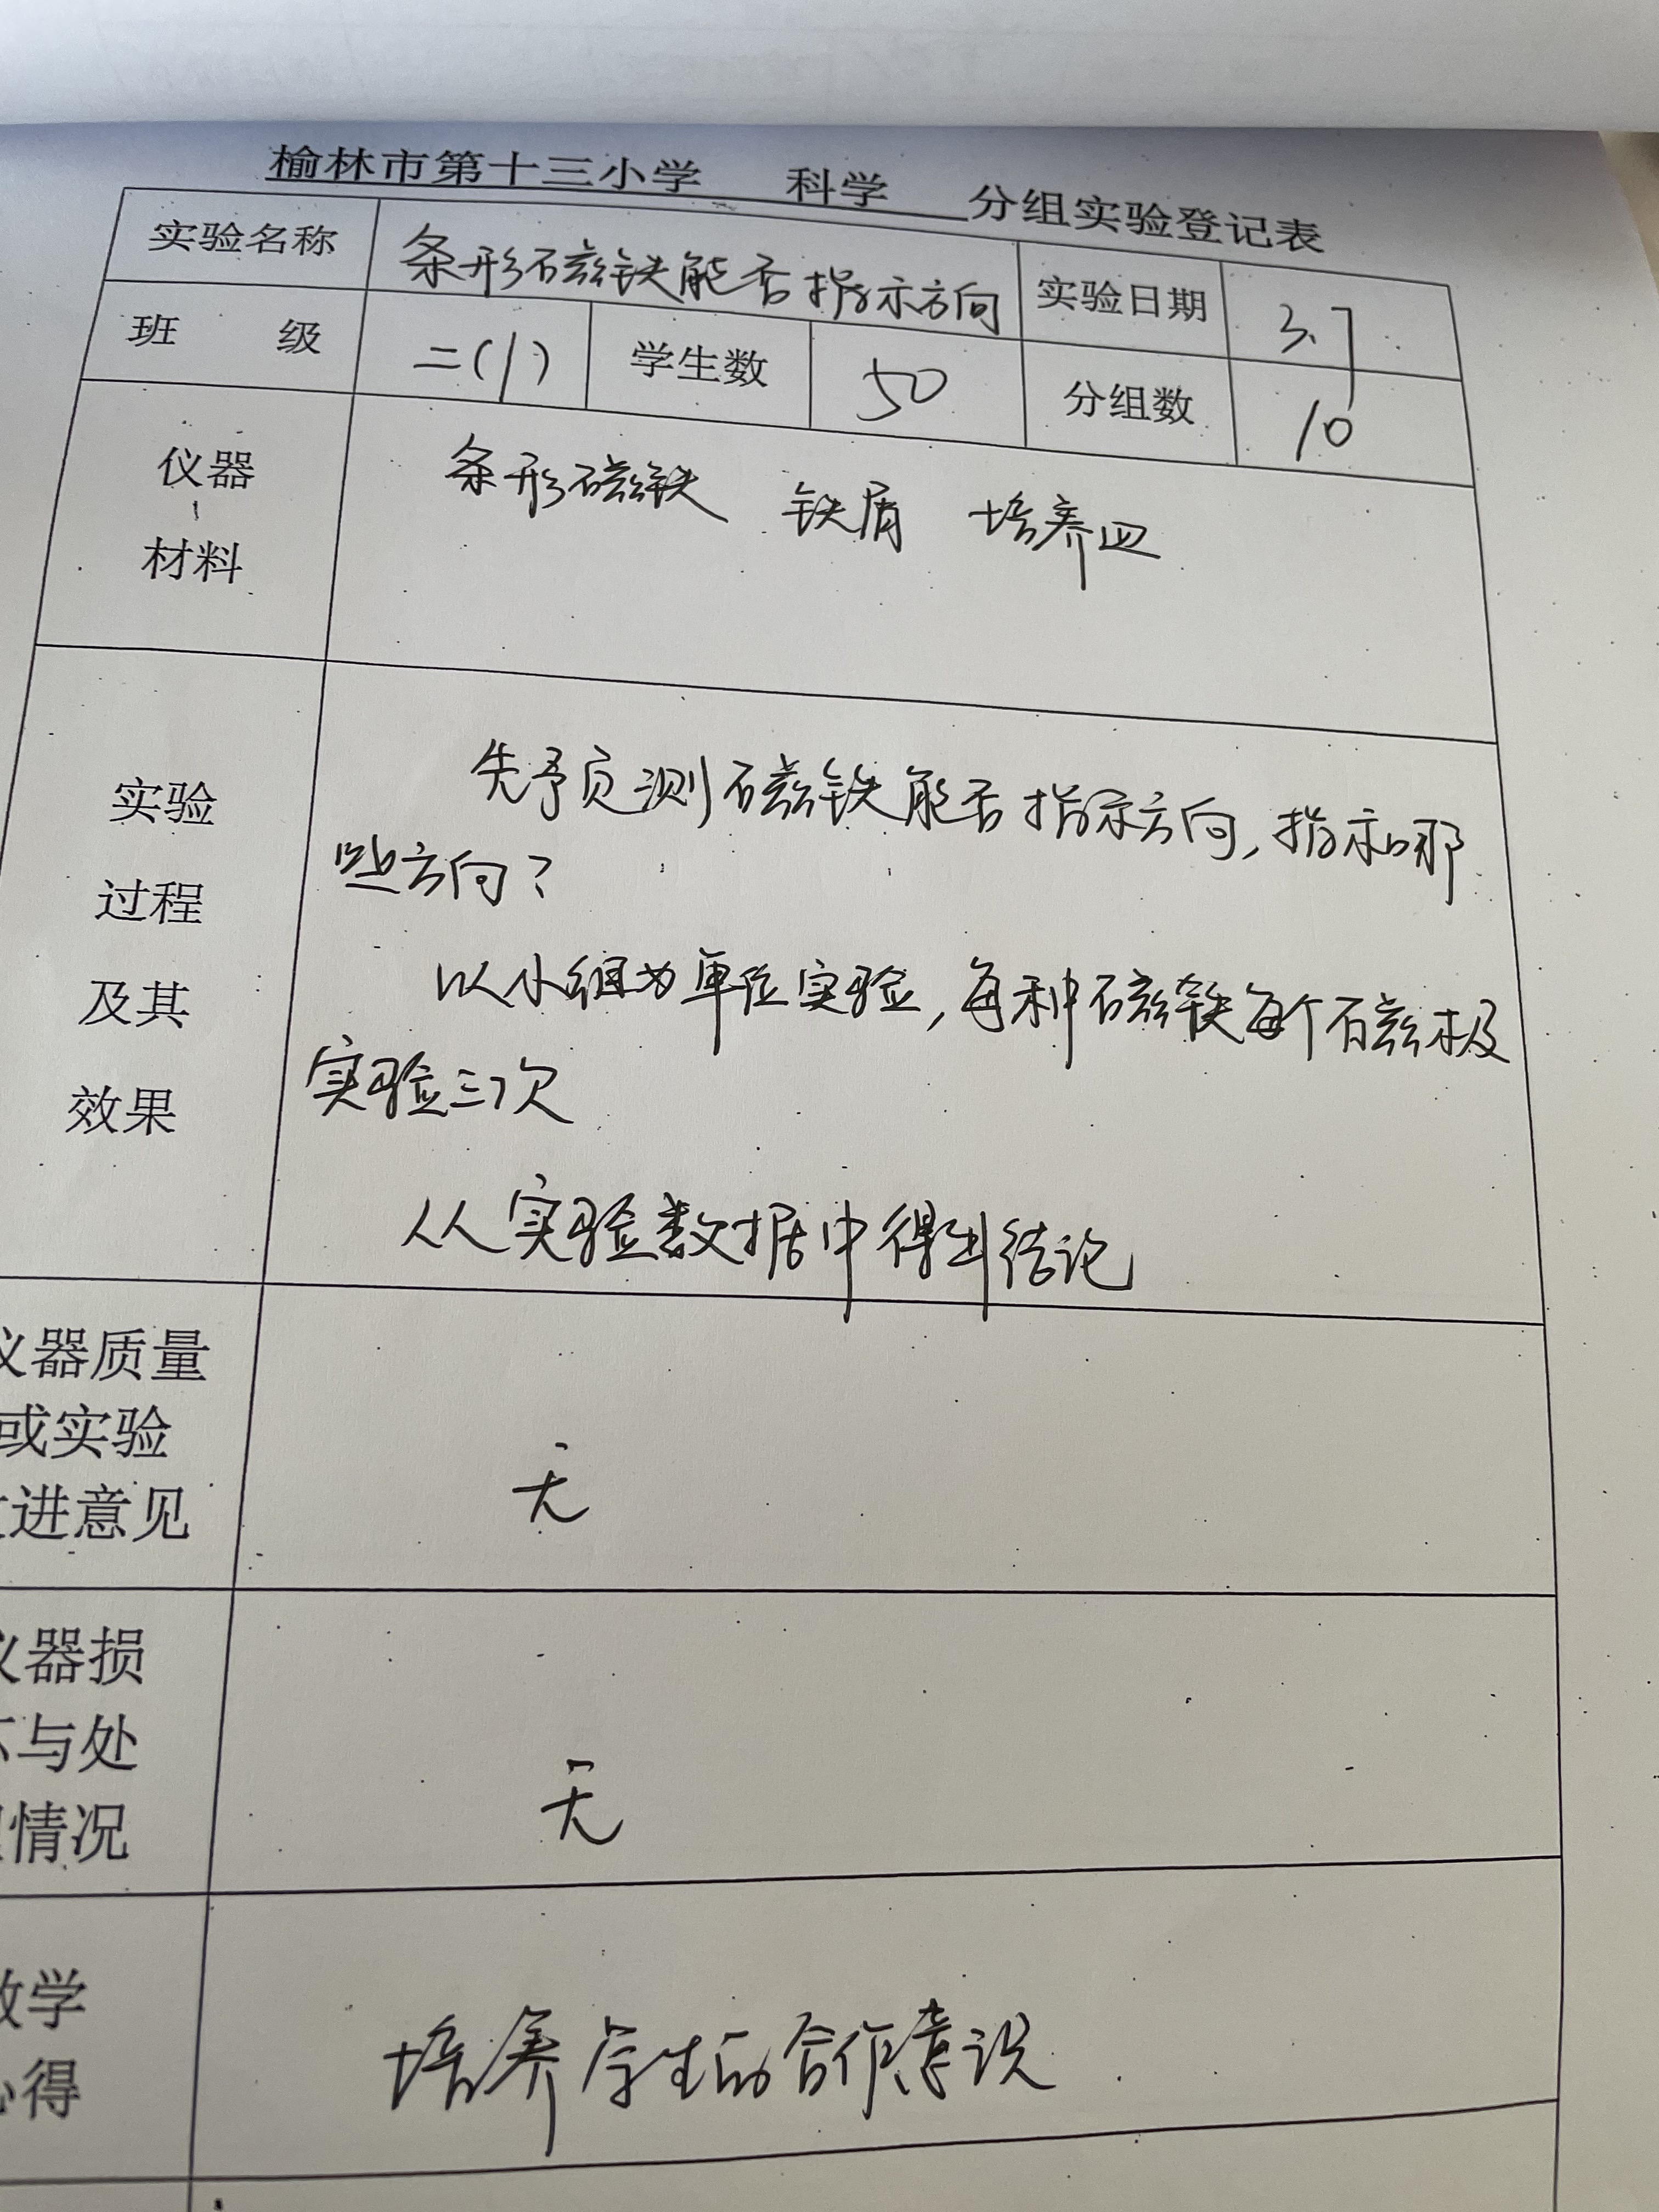 榆林市第十三小学 科学 分组实验登记表
实验名称 条形磁铁能否指示方向 实验日期 3.7
班 级 二(1) 学生数 50 分组数 10
仪器
材料
条形磁铁 铁屑 培养皿
实验
过程
及其
效果
先予页测磁铁能否指示方向,指示哪
些方向?
以小组为单位实验,每种磁铁每个磁极
实验三次
从实验数据中得出结论
仪器质量
或实验
改进意见
无
仪器损
坏与处
理情况
无
教学
心得
培养学生的合作意识